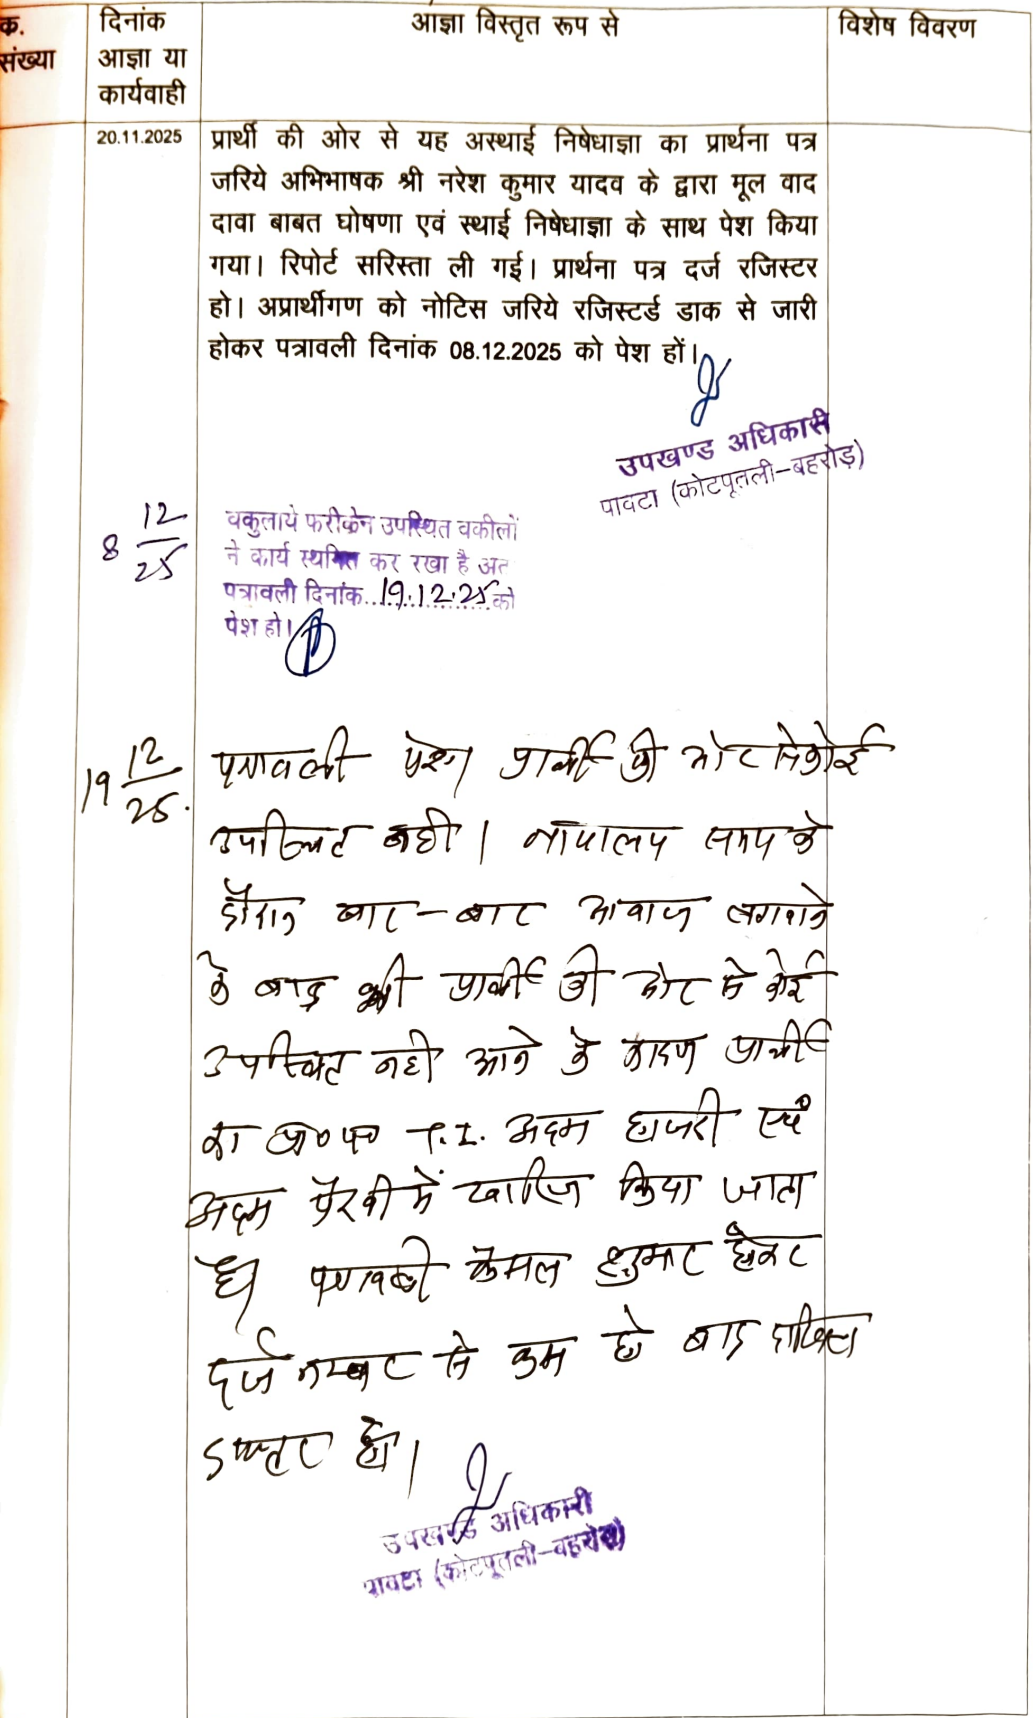 क्र.
संख्या
दिनांक
आज्ञा या
कार्यवाही
आज्ञा विस्तृत रूप से
विशेष विवरण
20.11.2025
प्रार्थी की ओर से यह अस्थाई निषेधाज्ञा का प्रार्थना पत्र
जरिये अभिभाषक श्री नरेश कुमार यादव के द्वारा मूल वाद
दावा बाबत घोषणा एवं स्थाई निषेधाज्ञा के साथ पेश किया
गया। रिपोर्ट सरिस्ता ली गई। प्रार्थना पत्र दर्ज रजिस्टर
हो। अप्रार्थीगण को नोटिस जरिये रजिस्टर्ड डाक से जारी
होकर पत्रावली दिनांक 08.12.2025 को पेश हों।
उपखण्ड अधिकारी
पावटा (कोटपूतली-बहरोड़)
8 12/25
वकुलाये फरीकेन उपस्थित वकीलों
ने कार्य स्थगित कर रखा है अत
पत्रावली दिनांक..19.12.25 को
पेश हो।
19 12/25.
पत्रावली पेश। प्रार्थी की ओर से कोई
उपस्थित नही। न्यायालय समय के
दौरान बार-बार आवाज लगवाने
के बाद भी प्रार्थी की ओर से कोई
उपस्थित नही आने के कारण प्रार्थी
का प्रा० प० T.I. अदम हाजरी एवं
अदम पैरवी में खारिज किया जाता
है। पत्रावली फैसल शुमार होकर
दर्ज नम्बर से कम हो बाद दाखिल
दफ्तर हो।
उपखण्ड अधिकारी
पावटा (कोटपूतली-बहरोड़)